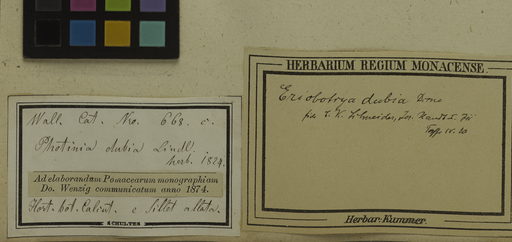 Wall. Cat. No. 668. c.
Photinia dubia Lindl.
herb. 1824.
Ad elaborandam Pomacearum monographiam
Do. Wenzig communicatum anno 1874.
Hort. bot. Calcut. e Sillet allata.
SCHULTES
HERBARIUM REGIUM MONACENSE.
Eriobotrya dubia Dcne
fide C. K. Schneider,
Herbar. Kummer.